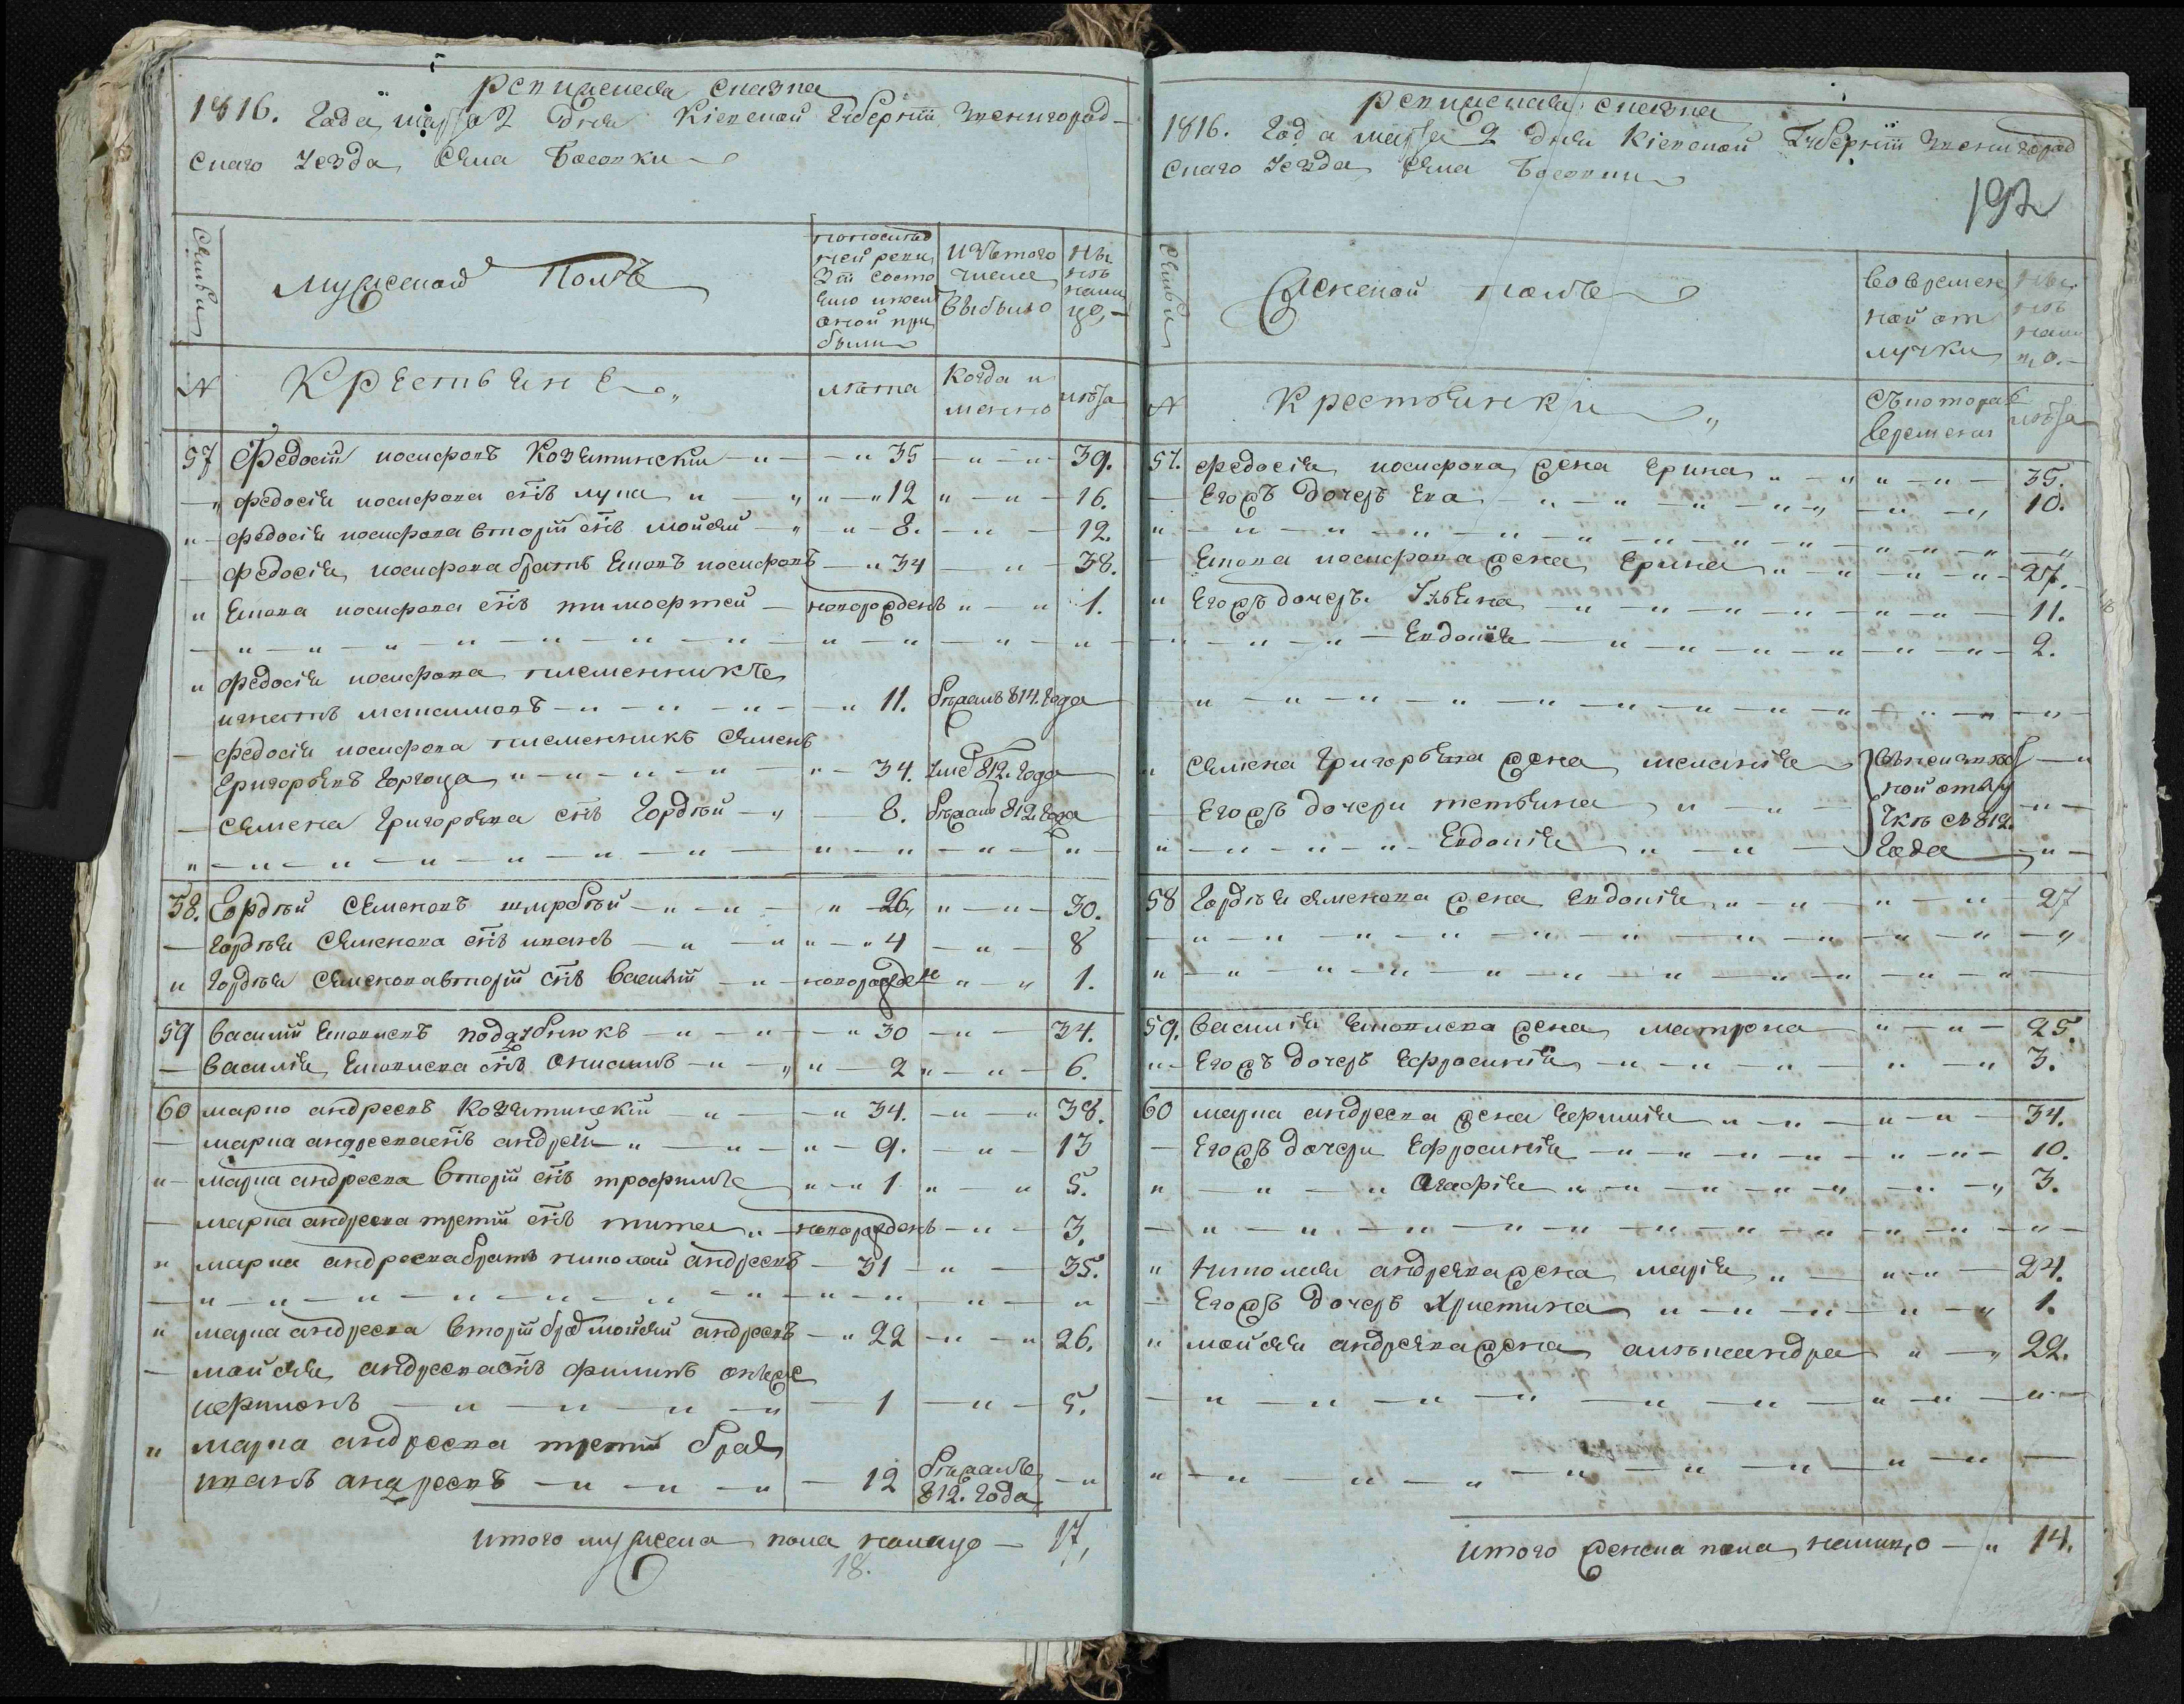 Ревизская сказка
1816. Года марта 2 дня Кіевской Губерніи Звенигород-
скаго уезда, села Босовки
Семьи
Мужеской Полъ
По последней ревизіи состояло и после оной прибыло
Изъ того числа выбыло
Ныне налицо
№
Крестьяне
Лета
Когда именно
лета
57 Федосій иосифовъ Козятинскій 35 39.
Федосія иосифова снъ лука 12 16.
Федосія иосифова вторій снъ Мойсей 8. 12.
Федосія иосифова братъ Яковъ иосифовъ 34 38.
Якова иосифова снъ тимофтей новорожденъ 1.
Федосія иосифова племенникъ
игнатъ максимовъ 11. бежалъ 814. Года
Федосія иосифова племенникъ Семенъ
Григорьевъ 34. уме 812. Года
Семена Григорьева снъ Гордей 8. бежалъ 812 Года
58. Гордей Семеновъ 26 30.
Гордея Семенова снъ иванъ 4 8
Гордея Семенова вторій снъ Василій новорожден 1.
59 Василій Яковлевъ 30 34.
Василія Яковлева снъ Онисимъ 2 6.
60 марко андреевъ Козятинскій 34. 38.
марка андреева снъ андрей 9. 13
марка андреева вторій снъ трофимъ 1 5.
марка андреева третій снъ никита новорожденъ 3.
марка андреева братъ николай андреевъ 31 35.
марка андреева вторій брат мойсей андреевъ 22 26.
мойсея андреева снъ филипъ онже
1 5.
марка андреева третій брат
иванъ андреевъ 12 бежалъ 812. Года
итого мужеска пола налицо 17,
18.
Ревизская сказка
1816. Года марта 2 дня Кіевской Губерніи Звенигород
скаго уезда, села Босовки
192
Семьи
Женской полъ
Во временной отлучки
Ныне налицо
№
Крестьянки
Съ котораго времени
лета
57. Федосія иосифова жена Ерина 35.
Егожъ дочеръ Ева 10.
Якова иосифова жена Ерина 27.
Егожъ дочеръ Ульяна 11.
Евдокія 2.
Семена Григорьева жена меланія
Егожъ дочери татьяна
Евдокія
отлучке съ 812. Года
58 Гордея Семенова жена Евдокія 27
59. Василія Яковлева жена матрона 25.
Егожъ дочеръ Ефросинія 3.
60 марка андреева жена 34.
Егожъ дочери Ефросинія 10.
Агафія 3.
николая андреева жена марія 24.
Егожъ дочеръ Христина 1.
мойсея андреева жена александра 22.
итого женска пола налицо 14.